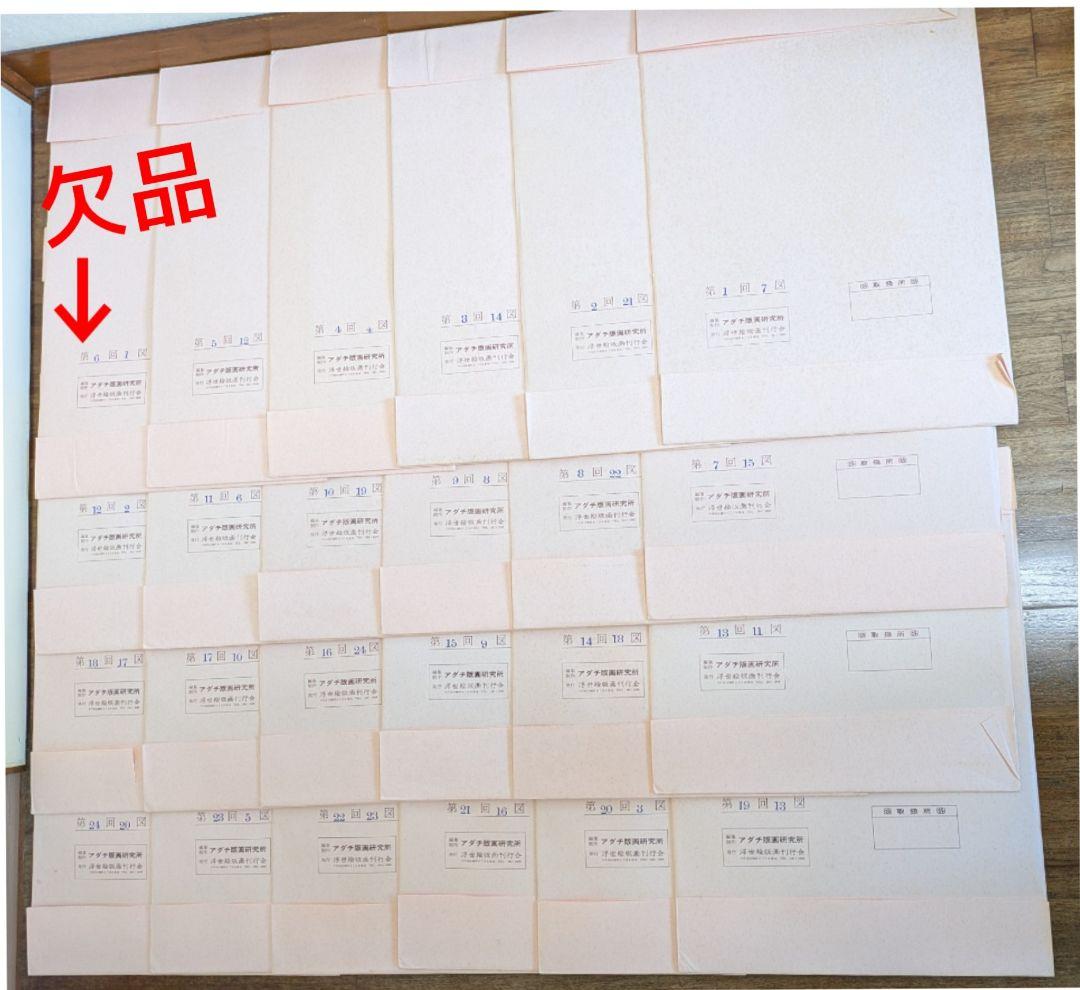 欠品
↓
第 6 回 1 図
編集制作 アダチ版画研究所
発行 浮世絵版画刊行会
第 5 回 12 図
編集制作 アダチ版画研究所
発行 浮世絵版画刊行会
第 4 回 4 図
編集制作 アダチ版画研究所
発行 浮世絵版画刊行会
第 3 回 14 図
編集制作 アダチ版画研究所
発行 浮世絵版画刊行会
第 2 回 21 図
編集制作 アダチ版画研究所
発行 浮世絵版画刊行会
第 1 回 7 図
編集制作 アダチ版画研究所
発行 浮世絵版画刊行会
取扱所
第 12 回 2 図
編集制作 アダチ版画研究所
発行 浮世絵版画刊行会
第 11 回 6 図
編集制作 アダチ版画研究所
発行 浮世絵版画刊行会
第 10 回 19 図
編集制作 アダチ版画研究所
発行 浮世絵版画刊行会
第 9 回 8 図
編集制作 アダチ版画研究所
発行 浮世絵版画刊行会
第 8 回 22 図
編集制作 アダチ版画研究所
発行 浮世絵版画刊行会
第 7 回 15 図
編集制作 アダチ版画研究所
発行 浮世絵版画刊行会
取扱所
第 18 回 17 図
編集制作 アダチ版画研究所
発行 浮世絵版画刊行会
第 17 回 10 図
編集制作 アダチ版画研究所
発行 浮世絵版画刊行会
第 16 回 24 図
編集制作 アダチ版画研究所
発行 浮世絵版画刊行会
第 15 回 9 図
編集制作 アダチ版画研究所
発行 浮世絵版画刊行会
第 14 回 18 図
編集制作 アダチ版画研究所
発行 浮世絵版画刊行会
第 13 回 11 図
編集制作 アダチ版画研究所
発行 浮世絵版画刊行会
取扱所
第 24 回 20 図
編集制作 アダチ版画研究所
発行 浮世絵版画刊行会
第 23 回 5 図
編集制作 アダチ版画研究所
発行 浮世絵版画刊行会
第 22 回 23 図
編集制作 アダチ版画研究所
発行 浮世絵版画刊行会
第 21 回 16 図
編集制作 アダチ版画研究所
発行 浮世絵版画刊行会
第 20 回 3 図
編集制作 アダチ版画研究所
発行 浮世絵版画刊行会
第 19 回 13 図
編集制作 アダチ版画研究所
発行 浮世絵版画刊行会
取扱所